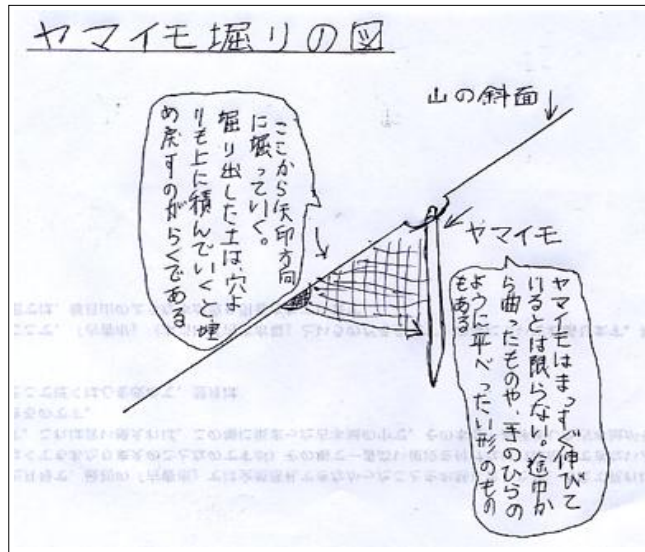 ヤマイモ堀りの図
山の斜面
ここから矢印方向
に堀っていく。
堀り出した土は、穴よ
りも上に積んでいくと埋
め戻すのがらくである
ヤマイモ
ヤマイモはまっすぐ伸びて
いるとは限らない。途中か
ら曲ったものや、手のひらの
ように平べったい形のもの
もある